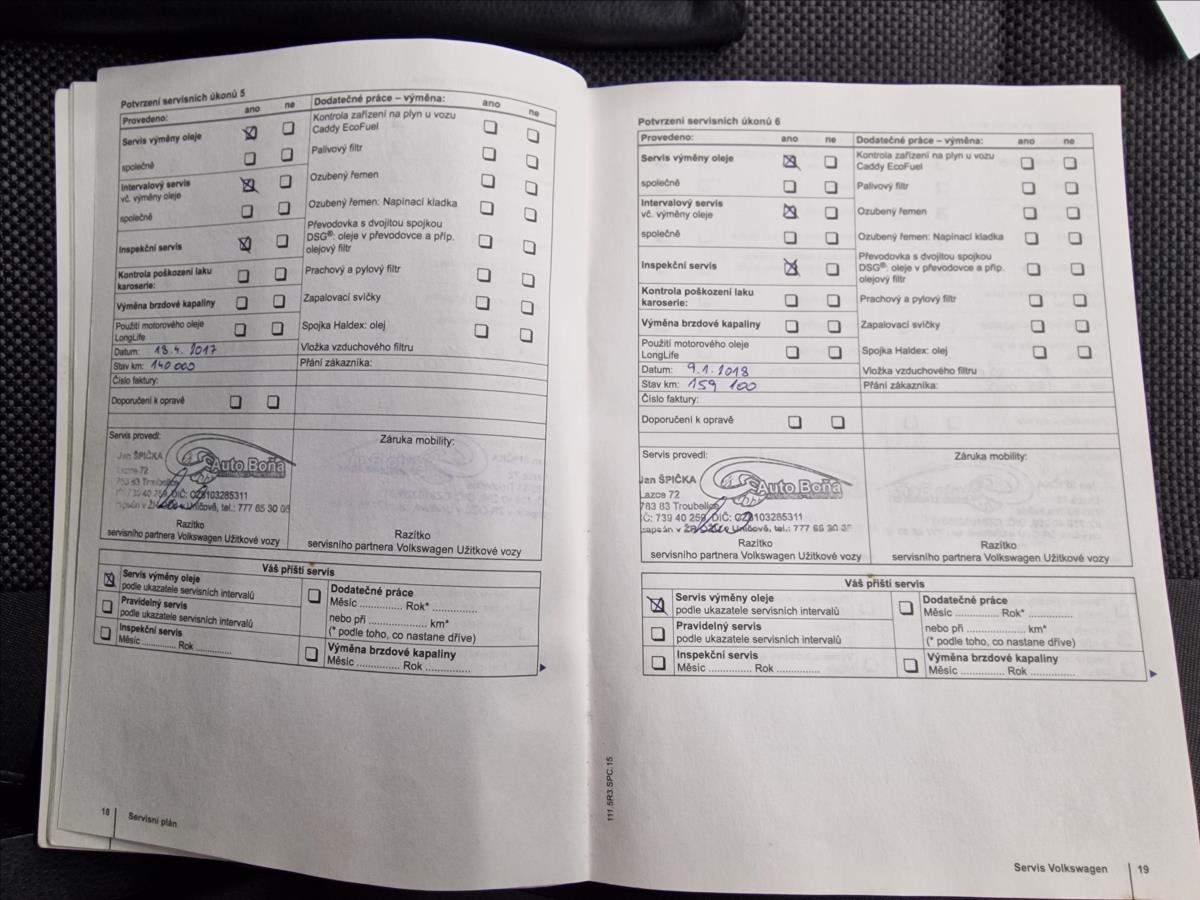 Potvrzení servisních úkonů 5
Provedeno: ano ne
Dodatečné práce – výměna: ano ne
Servis výměny oleje
Kontrola zařízení na plyn u vozu
Caddy EcoFuel
společně
Palivový filtr
Intervalový servis
vč. výměny oleje
Ozubený řemen
společně
Ozubený řemen: Napínací kladka
Inspekční servis
Převodovka s dvojitou spojkou
DSG®: oleje v převodovce a příp.
olejový filtr
Kontrola poškození laku
karoserie:
Prachový a pylový filtr
Výměna brzdové kapaliny
Zapalovací svíčky
Použití motorového oleje
LongLife
Spojka Haldex: olej
Datum: 18.4.2017
Vložka vzduchového filtru
Stav km: 140 000
Přání zákazníka:
Číslo faktury:
Doporučení k opravě
Servis provedl:
Záruka mobility:
Jan ŠPIČKA
Auto Boňa
Lazce 72
783 83 Troubelice
DIČ: CZ8103285311
Uničově, tel.: 777 65 30
Razítko
servisního partnera Volkswagen Užitkové vozy
Razítko
servisního partnera Volkswagen Užitkové vozy
Váš příští servis
Servis výměny oleje
podle ukazatele servisních intervalů
Pravidelný servis
podle ukazatele servisních intervalů
Inspekční servis
Měsíc .............. Rok ..............
Dodatečné práce
Měsíc .............. Rok* ..............
nebo při .............. km*
(* podle toho, co nastane dříve)
Výměna brzdové kapaliny
Měsíc .............. Rok ..............
18
Servisní plán
Potvrzení servisních úkonů 6
Provedeno: ano ne
Dodatečné práce – výměna: ano ne
Servis výměny oleje
Kontrola zařízení na plyn u vozu
Caddy EcoFuel
společně
Palivový filtr
Intervalový servis
vč. výměny oleje
Ozubený řemen
společně
Ozubený řemen: Napínací kladka
Inspekční servis
Převodovka s dvojitou spojkou
DSG®: oleje v převodovce a příp.
olejový filtr
Kontrola poškození laku
karoserie:
Prachový a pylový filtr
Výměna brzdové kapaliny
Zapalovací svíčky
Použití motorového oleje
LongLife
Spojka Haldex: olej
Datum: 9.1.2018
Vložka vzduchového filtru
Stav km: 159 100
Přání zákazníka:
Číslo faktury:
Doporučení k opravě
Servis provedl:
Záruka mobility:
Jan ŠPIČKA
Auto Boňa
Lazce 72
783 83 Troubelice
IČ: 739 40 259, DIČ: CZ8103285311
Uničově, tel.: 777 65 30
Razítko
servisního partnera Volkswagen Užitkové vozy
Razítko
servisního partnera Volkswagen Užitkové vozy
Váš příští servis
Servis výměny oleje
podle ukazatele servisních intervalů
Pravidelný servis
podle ukazatele servisních intervalů
Inspekční servis
Měsíc .............. Rok ..............
Dodatečné práce
Měsíc .............. Rok* ..............
nebo při .............. km*
(* podle toho, co nastane dříve)
Výměna brzdové kapaliny
Měsíc .............. Rok ..............
111.5R3.SPC.15
Servis Volkswagen 19